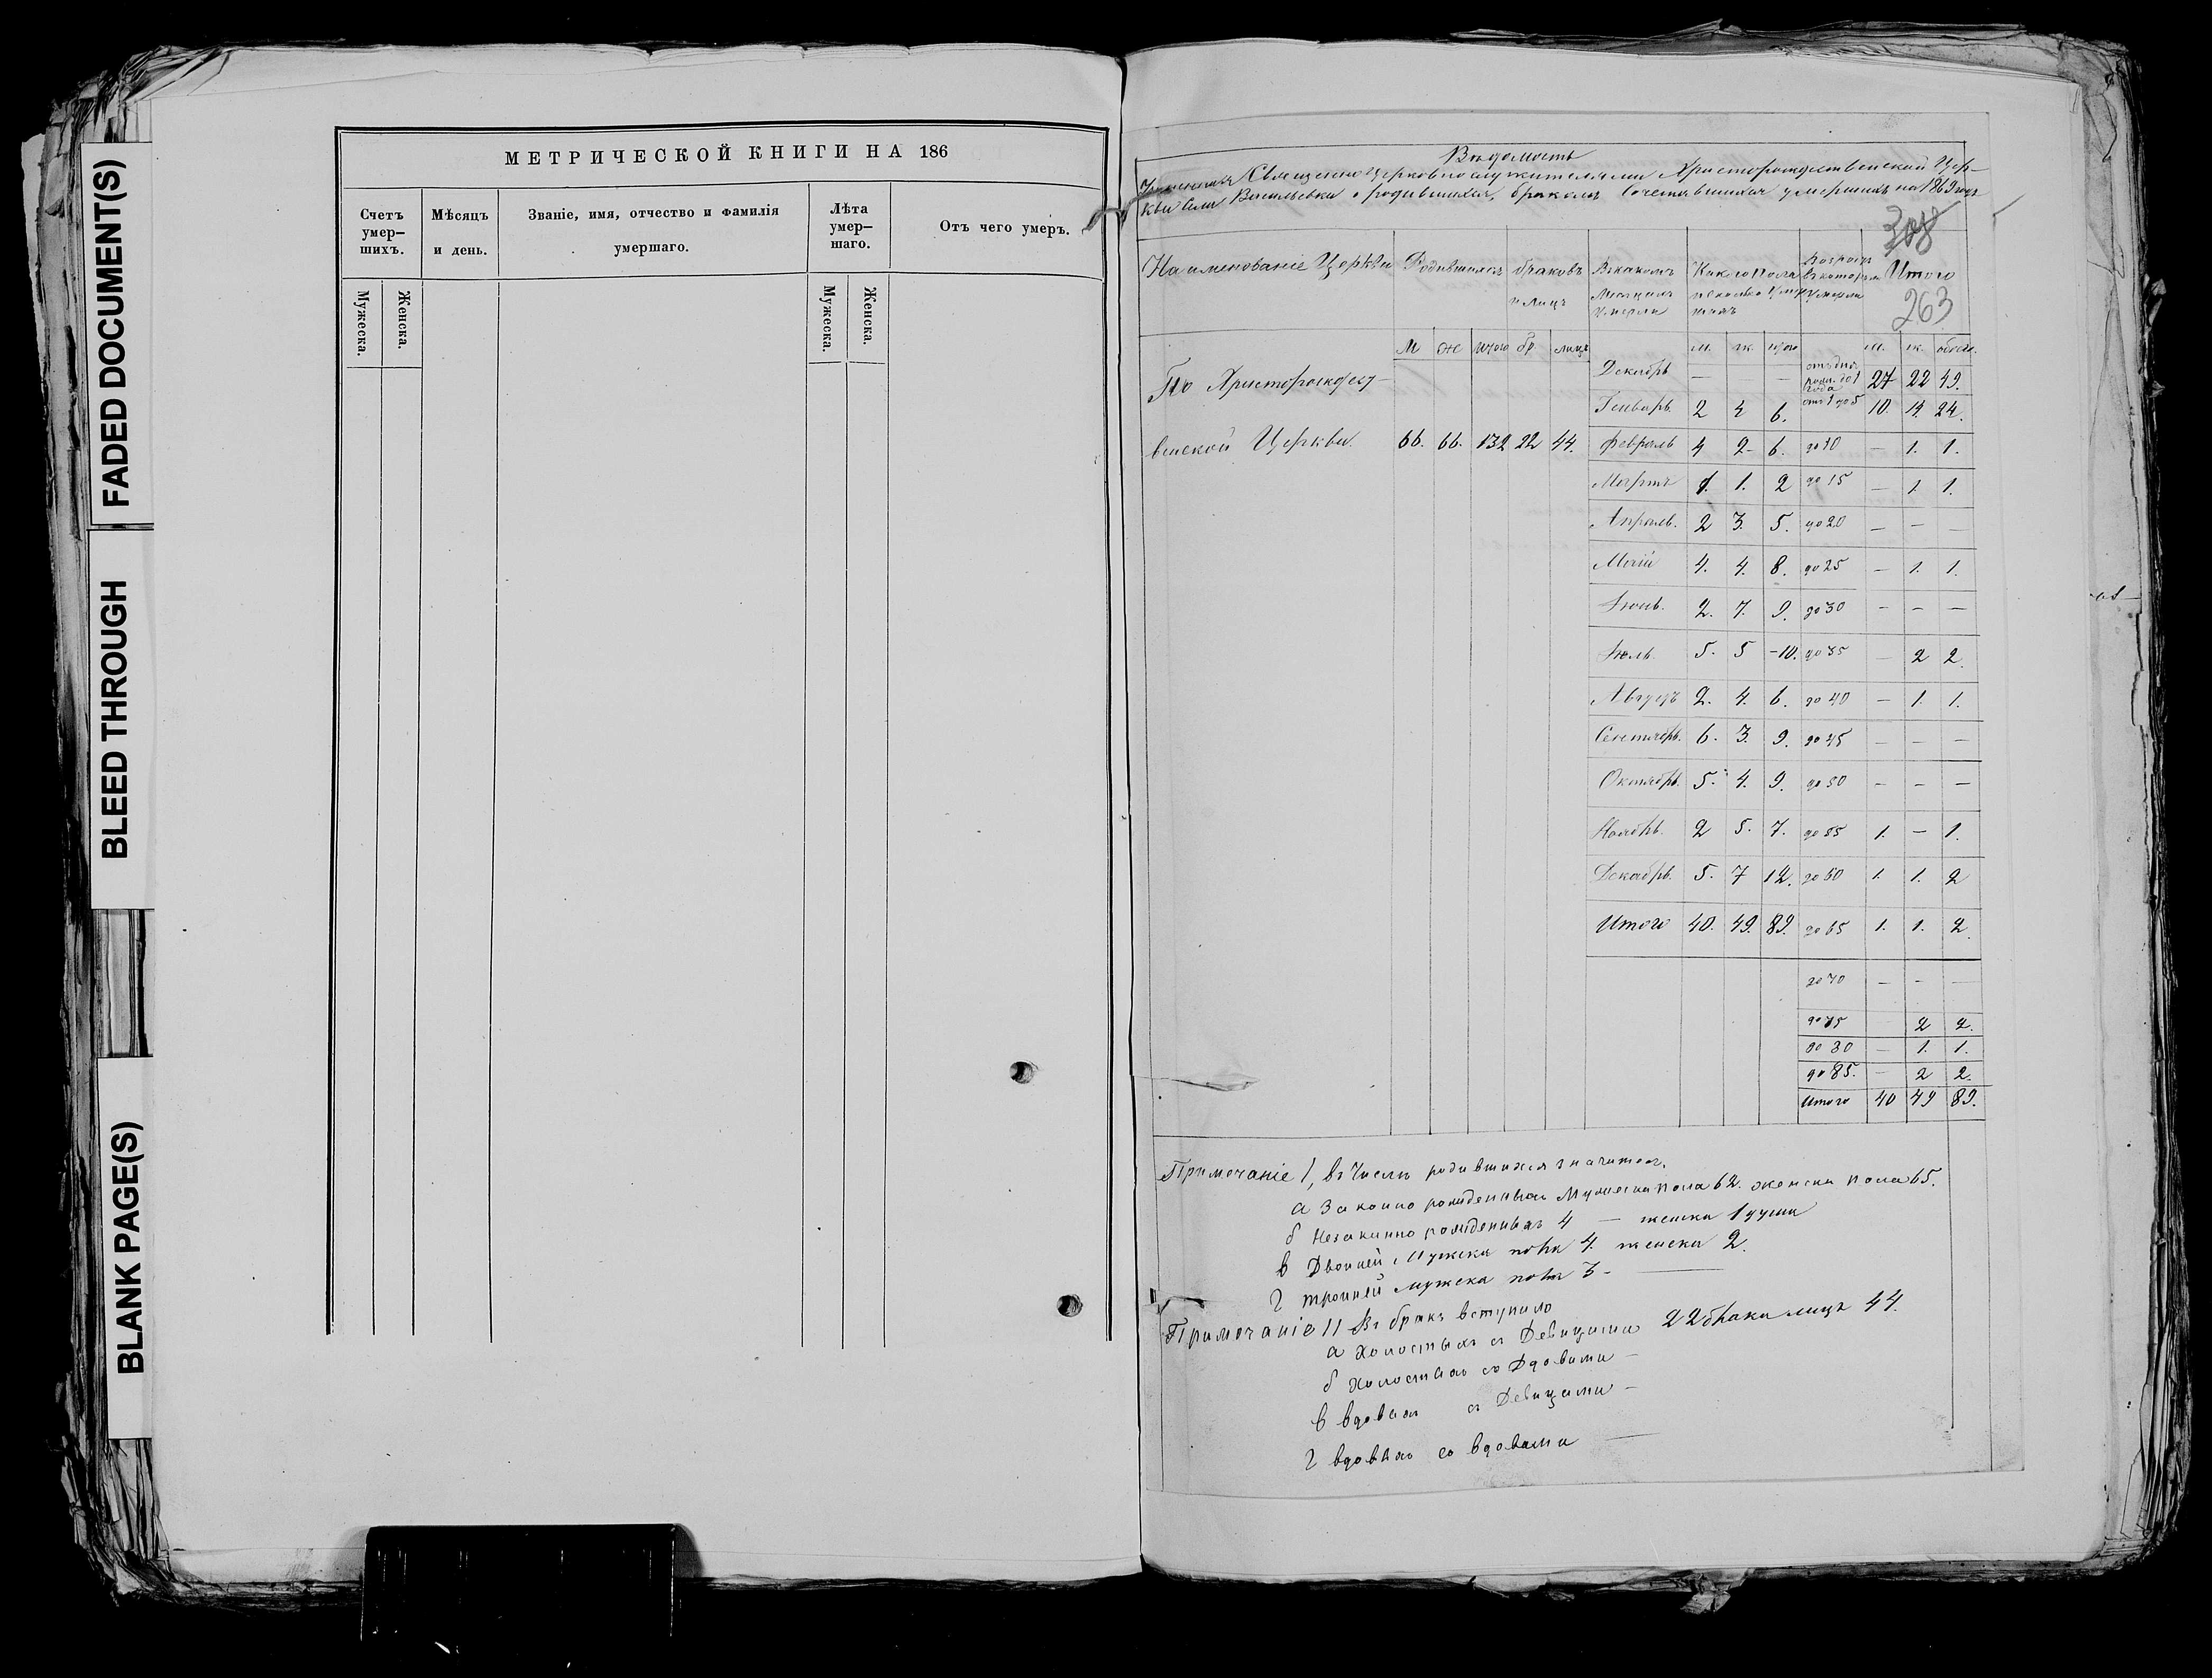 FADED DOCUMENT(S)
BLEED THROUGH
BLANK PAGE(S)
МЕТРИЧЕСКОЙ КНИГИ НА 186
Счетъ умер-шихъ.
Мѣсяцъ и день.
Званіе, имя, отчество и фамилія умершаго.
Лѣта умер-шаго.
Отъ чего умеръ.
Мужеска.
Женска.
Мужеска.
Женска.
Вѣдомость
Священно церковнослужителями Христорождественской Цер-
кви Села Васильевки о родившихся, бракомъ сочетавшихся умершихъ на 1869 годъ
308
263
Наименованіе Церкви
Родившихся
браковъ и лицъ
Въ какомъ месяцѣ умерли
Какого пола
Возрастъ въ которомъ умерли
Итого
м ж итого бр. лицъ
м. ж. итого
м. ж. обоего.
По Христорождест-
венской Церкви 66. 66. 132 22 44.
Декабрь — — — отъ дня рожд. до 1 года 27 22 49.
Генварь 2 4 6. отъ 1 до 5 10. 14. 24.
Февраль 4 2 6. до 10 — 1. 1.
Мартъ 1. 1. 2 до 15 — 1. 1.
Апрель. 2 3. 5. до 20 — — —
Маій 4. 4. 8. до 25 — 1. 1.
Іюнь. 2. 7. 9. до 30 — — —
Іюль. 5. 5 -10. до 35 — 2 2.
Августъ 2. 4. 6. до 40 — 1. 1.
Сентябрь. 6. 3. 9. до 45 — — —
Октябрь. 5. 4. 9. до 50 — — —
Ноябрь. 2 5. 7. до 55 1. — 1.
Декабрь. 5. 7 12. до 60 1. 1. 2
Итого 40. 49. 89. до 65 1. 1. 2
до 70 — — —
до 75 2 2.
до 80 — 1. 1.
до 85. — 2 2.
Итого 40 49 89.
Примечаніе I, въ числѣ родившихся значится.
а Законно рожденныхъ Мужеска пола 62. женска пола 65.
б Незаконно рожденныхъ 4 — женска 1 души
в Двойней Мужска пола 4. женска 2.
г тройней мужска пола 3 - —
Примечаніе II Въ бракъ вступило
а Холостыхъ съ Девицами 22 брака лицъ 44.
б Холостыхъ со Вдовами —
в вдовыхъ съ Девицами —
г вдовыхъ со вдовами —